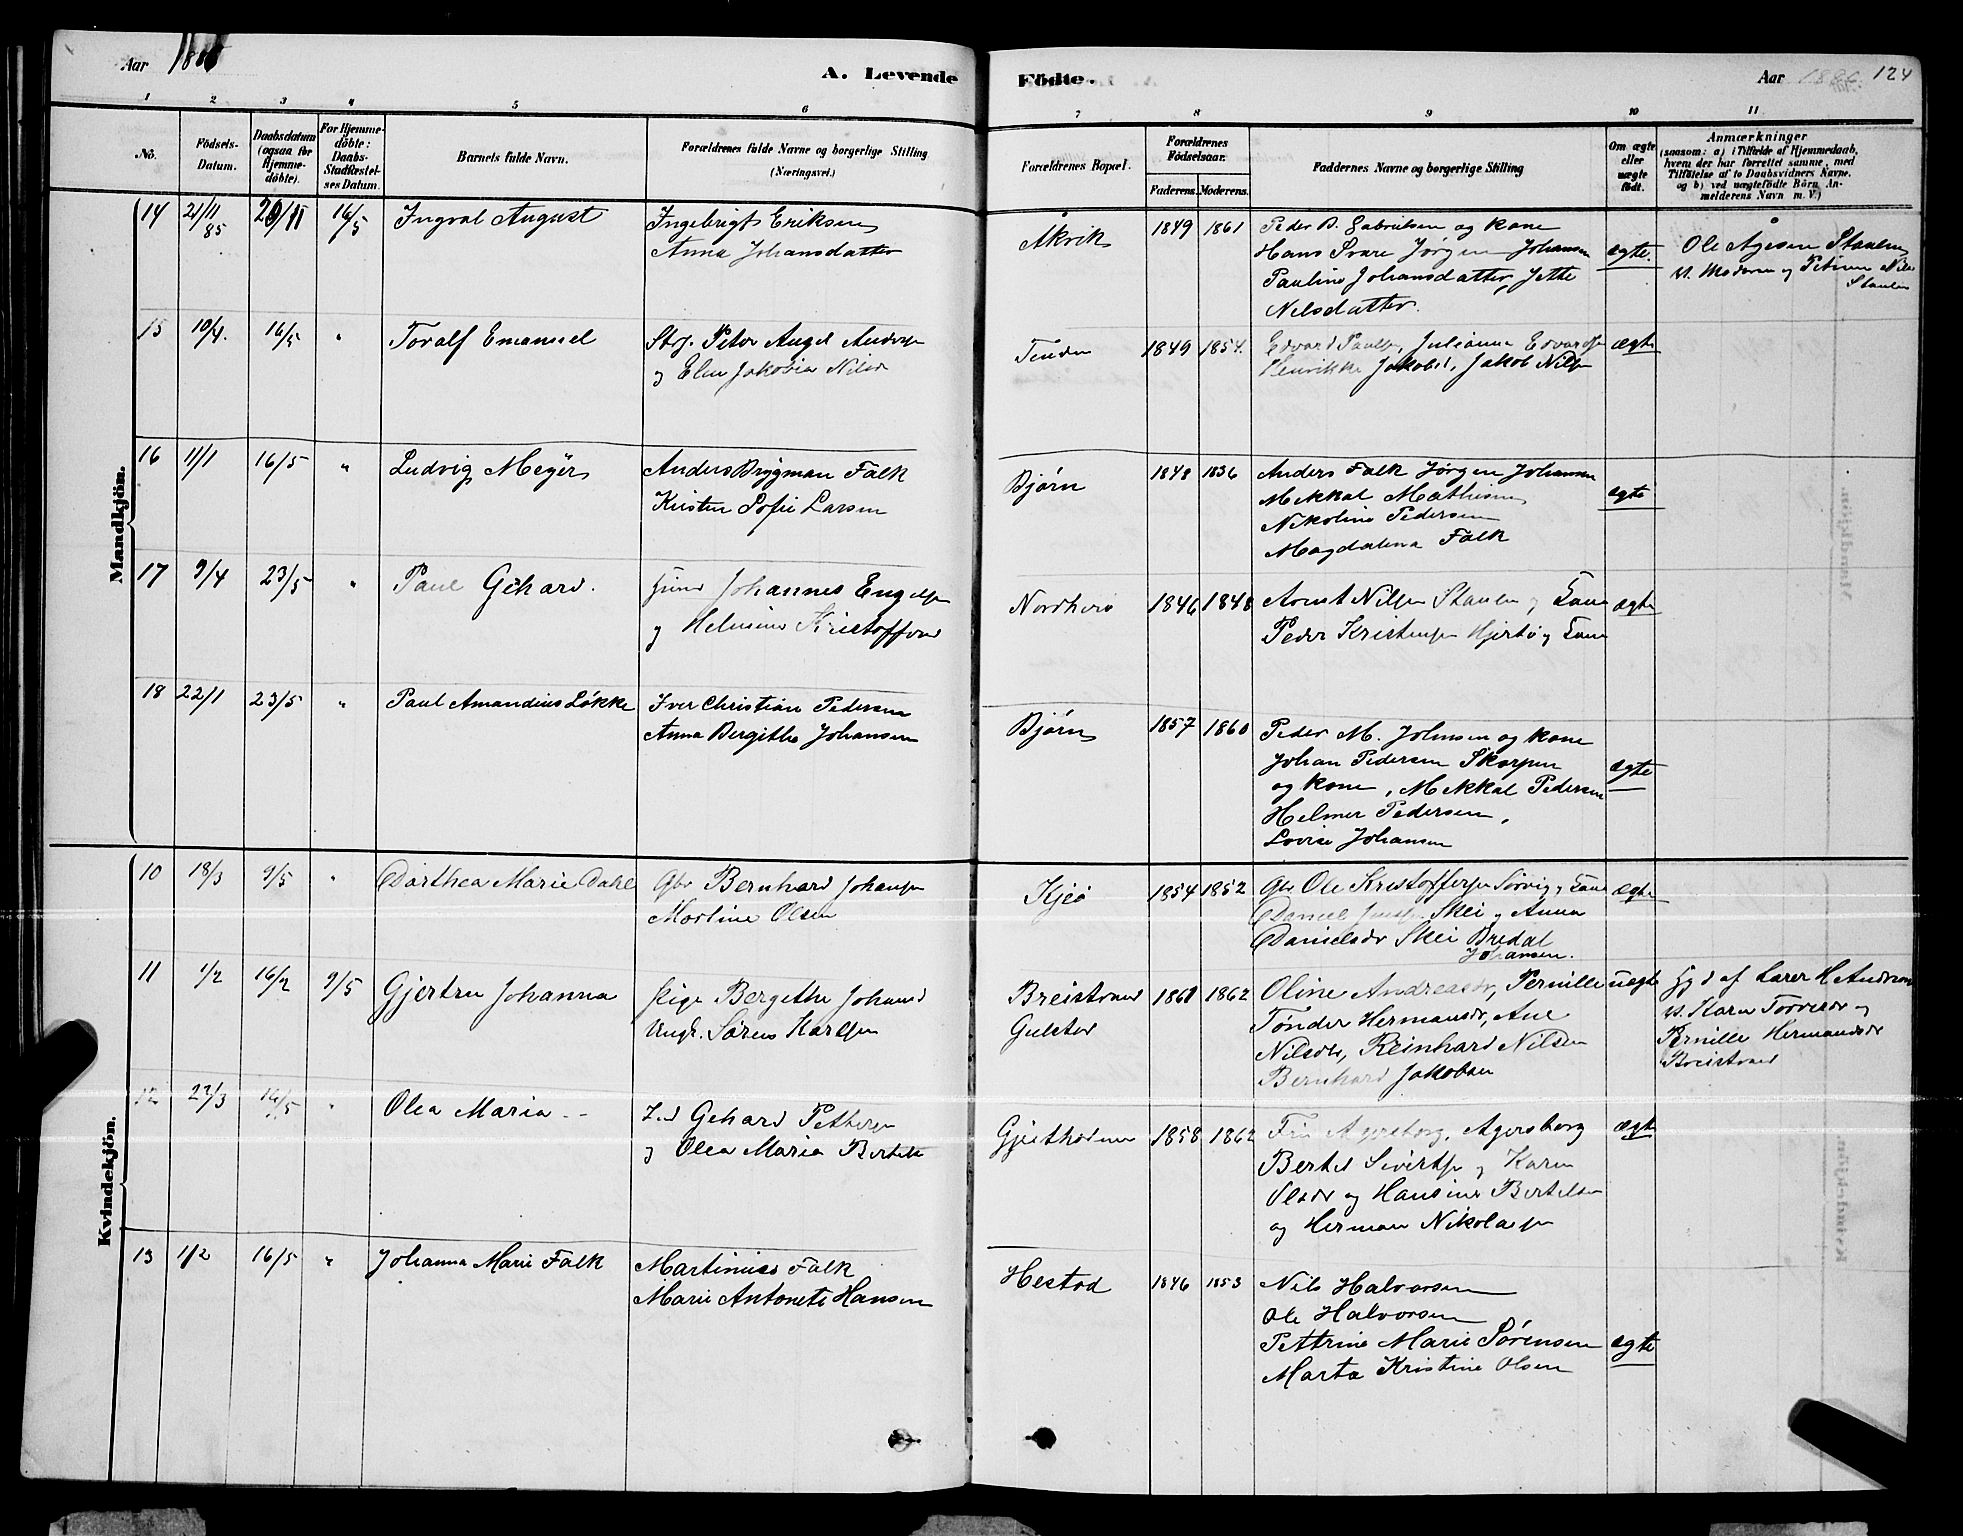 Aar 1886
A. Levende
Födte.
Aar 1886
124
1 2 3 4 5 6 7 8 9 10 11
No.
Födsels-
Datum.
Daabsdatum
(ogsaa for
Hjemme-
döbte).
For Hjemme-
döbte:
Daabs-
Stadfæstel-
ses Datum.
Barnets fulde Navn.
Forældrenes fulde Navne og borgerlige Stilling
(Næringsvei.)
Forældrenes Bopæl.
Forældrenes
Födselsaar.
Faderens. Moderens.
Faddernes Navne og borgerlige Stilling
Om ægte
eller
uægte
födt.
Anmærkninger
(saasom: a) i Tilfælde af Hjemmedaab,
hvem der har forrettet samme, med
Tilföielse af to Daabsvidners Navne.
og b) ved uægtefödte Börn, An-
melderens Navn m. V.)
Mandkjön.
14 21/11 85 29/11 16/5 Ingval August
Ingebrigt Eriksen
Anna Johansdatter
Åkvik 1849 1861
Peder D. Gabrielsen og kone
Hans Svare Jørgen Johansen
Pauline Johansdatter, Jette
Nilsdatter.
ægte.
Ole Agesen Staulen
v. Moderen og Petrine Nils
Staulen
15 10/4. 16/5 " Toralf Emanuel
Strf. Peter Angel Anders
og Elen Jakobia Nilsd
1849 1854.
Edvard Pauls, Julianna Edvards
Henrikke Jakobsd, Jakob Nils
ægte
16 11/1 16/5 " Ludvig Meyer
Anders Brygman Falk
Kirsten Sofie Larsen
Bjørn 1848 1836
Anders Falk Jørgen Johansen
Mekkal Mathisen
Nikoline Pedersen
Magdalena Falk
ægte
17 9/4 23/5 " Paul Gehard.
Johannes Engels
og Kristoffersd
1846 1848
Arnt Nils Staulen og Kone
Peder Kristens Hjertø og Kone
ægte
18 22/1 23/5 " Paul Amandius Løkke
Iver Christian Pedersen
Anna Bergithe Johansen
Bjørn 1857 1860
Peder M. Johnsen og kone
Johan Pedersen Skorpen
og kone, Mekkal Pedersen
Helmer Pedersen,
Lovise Johansen
ægte
Kvindekjön.
10 18/3 9/5 " Dorthea Marie Dahl
Gbr Bernhard Johans
Martine Olsen
Kjeø 1854 1852
Gbr Ole Kristoffers Sørvig og Kone
Daniel Jens Skei og Anna
Danielsdr Skei Bredal
Johansen.
ægte
11 1/2 16/2 9/5 Gjertru Johanna
Pige Bergithe Johansd
Ungk. Søren Karls
Breistrand
1861 1862
Oline Andreasdr, Pernille
Tønder Hermansdr, Ane
Nilsdr, Reinhard Nilsen
Bernhard Jakobsen
uægte
Hjd af Lærer H Andersen
v. Karen Torresdr og
Pernille Hermansdr
Breistrand
12 22/3 16/5 " Olea Maria
Gehard Petters
og Olea Maria Bertels
1858 1862
Agersborg, Agersborg
Bertel Siverts og Karen
Olsdr og Hansine Bertelsen
og Herman Nikolais
ægte
13 1/2 16/5 " Johanna Marie Falk
Martinius Falk
Marie Antonete Hansen
Hestad 1846 1853
Nils Halvorsen
Ole Halvorsen
Pettrine Marie Sørensen
Marta Kristine Olsen
ægte